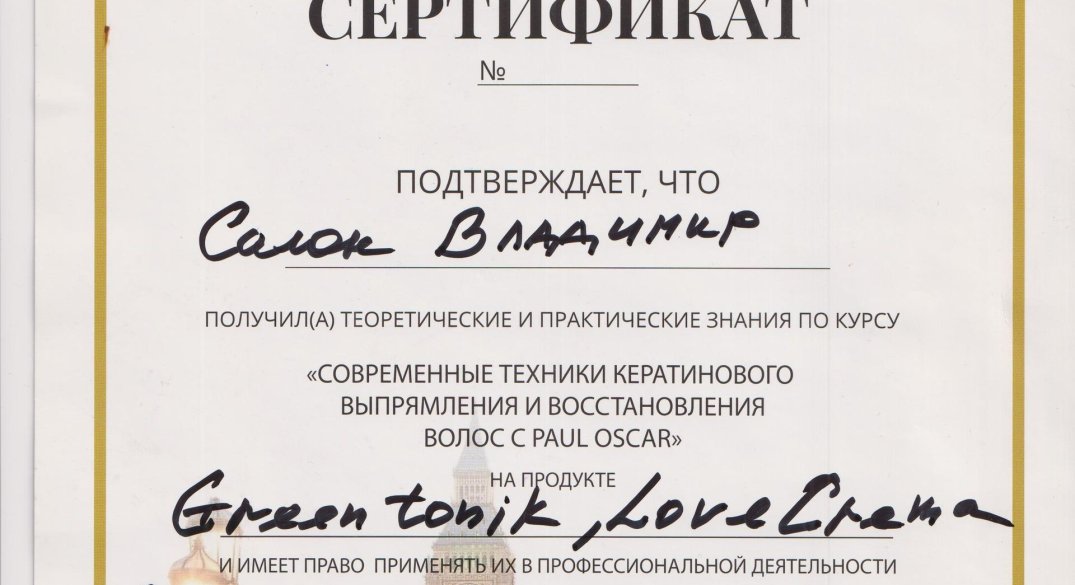 СЕРТИФИКАТ
№
ПОДТВЕРЖДАЕТ, ЧТО
Салон Владимир
ПОЛУЧИЛ(А) ТЕОРЕТИЧЕСКИЕ И ПРАКТИЧЕСКИЕ ЗНАНИЯ ПО КУРСУ
«СОВРЕМЕННЫЕ ТЕХНИКИ КЕРАТИНОВОГО
ВЫПРЯМЛЕНИЯ И ВОССТАНОВЛЕНИЯ
ВОЛОС С PAUL OSCAR»
НА ПРОДУКТЕ
Green tonik, Love Crema
И ИМЕЕТ ПРАВО ПРИМЕНЯТЬ ИХ В ПРОФЕССИОНАЛЬНОЙ ДЕЯТЕЛЬНОСТИ